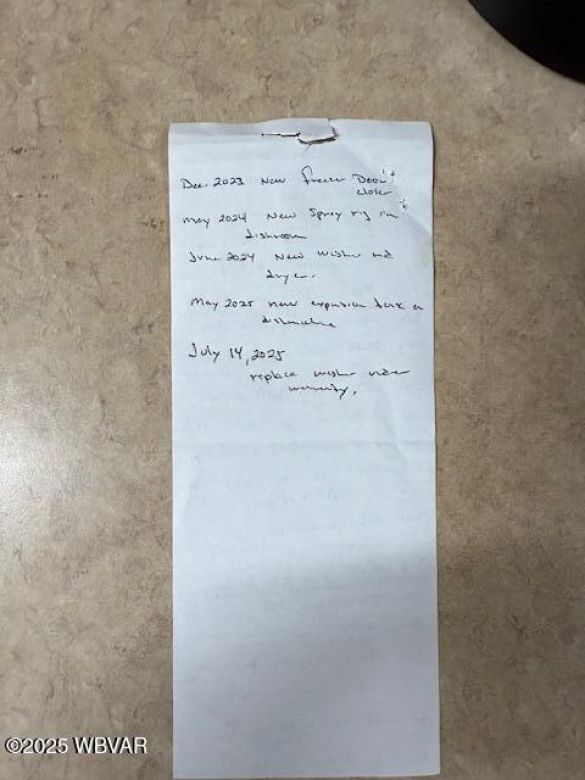 Dec 2023 New freezer Door
closer
May 2024 New Spray rig in
dishroom
June 2024 New washer and
dryer.
May 2025 new expansion tank on
dishmachine
July 14, 2025
replace washer under
warranty.
©2025 WBVAR